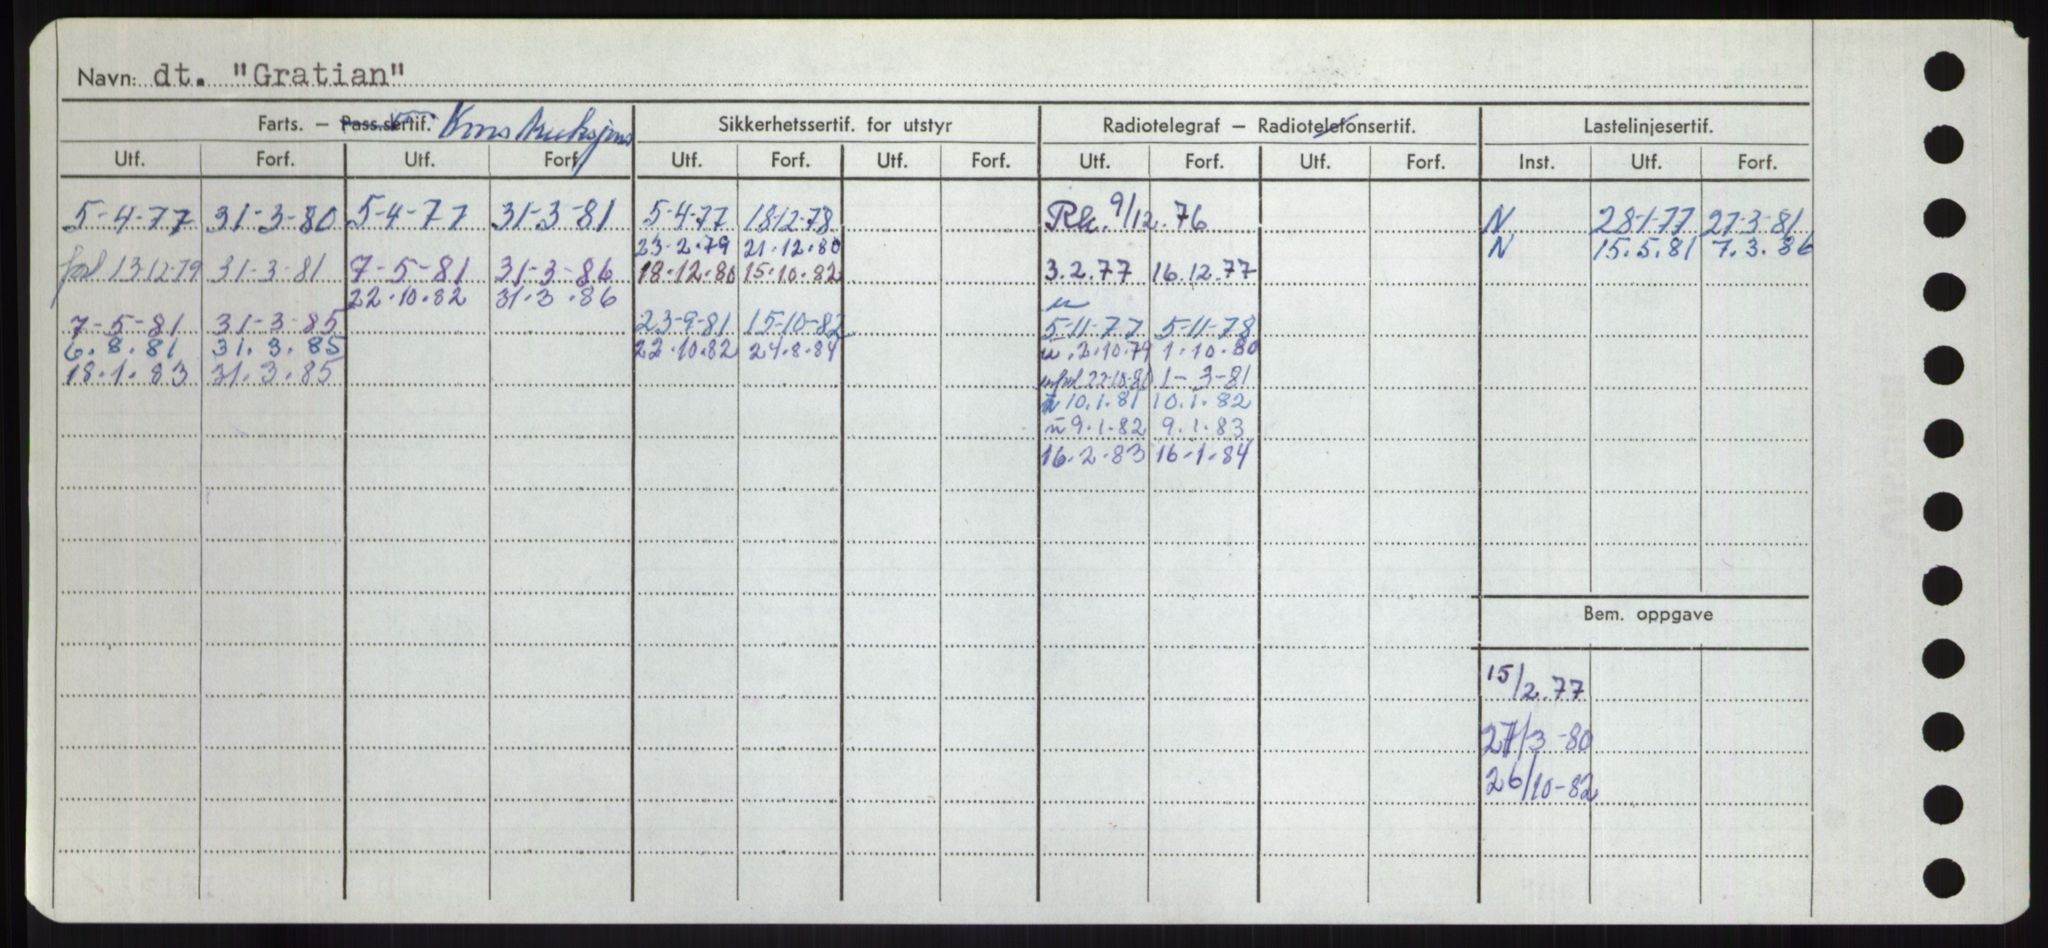 Navn: dt. "Gratian"
Farts. — Pass.sertif. Konstruksjons Sikkerhetssertif. for utstyr Radiotelegraf — Radiotelefonsertif. Lastelinjesertif.
Utf. Forf. Utf. Forf. Utf. Forf. Utf. Forf. Utf. Forf. Utf. Forf. Inst. Utf. Forf.
5-4-77 31-3-80 5-4-77 31-3-81 5-4-77 18-12-78 Rk. 9/12.76 N 28-1-77 27-3-81
23-2-79 21.12.80 N 15.5.81 7.3.86
13-12-79 31-3-81 7-5-81 31-3-86 18-12-80 15-10-82 3.2.77 16.12.77
22.10.82 31.3.86
7-5-81 31-3-85 23-9-81 15-10-82 5-11-77 5-11-78
6.8.81 31.3.85 22.10.82 24.8.84 2.10.79 1.10.80
18.1.83 31.3.85 22-10-80 1-3-81
10.1.81 10.1.82
9.1.82 9.1.83
16.2.83 16.1.84
Bem. oppgave
15/2.77
27/3-80
26/10-82